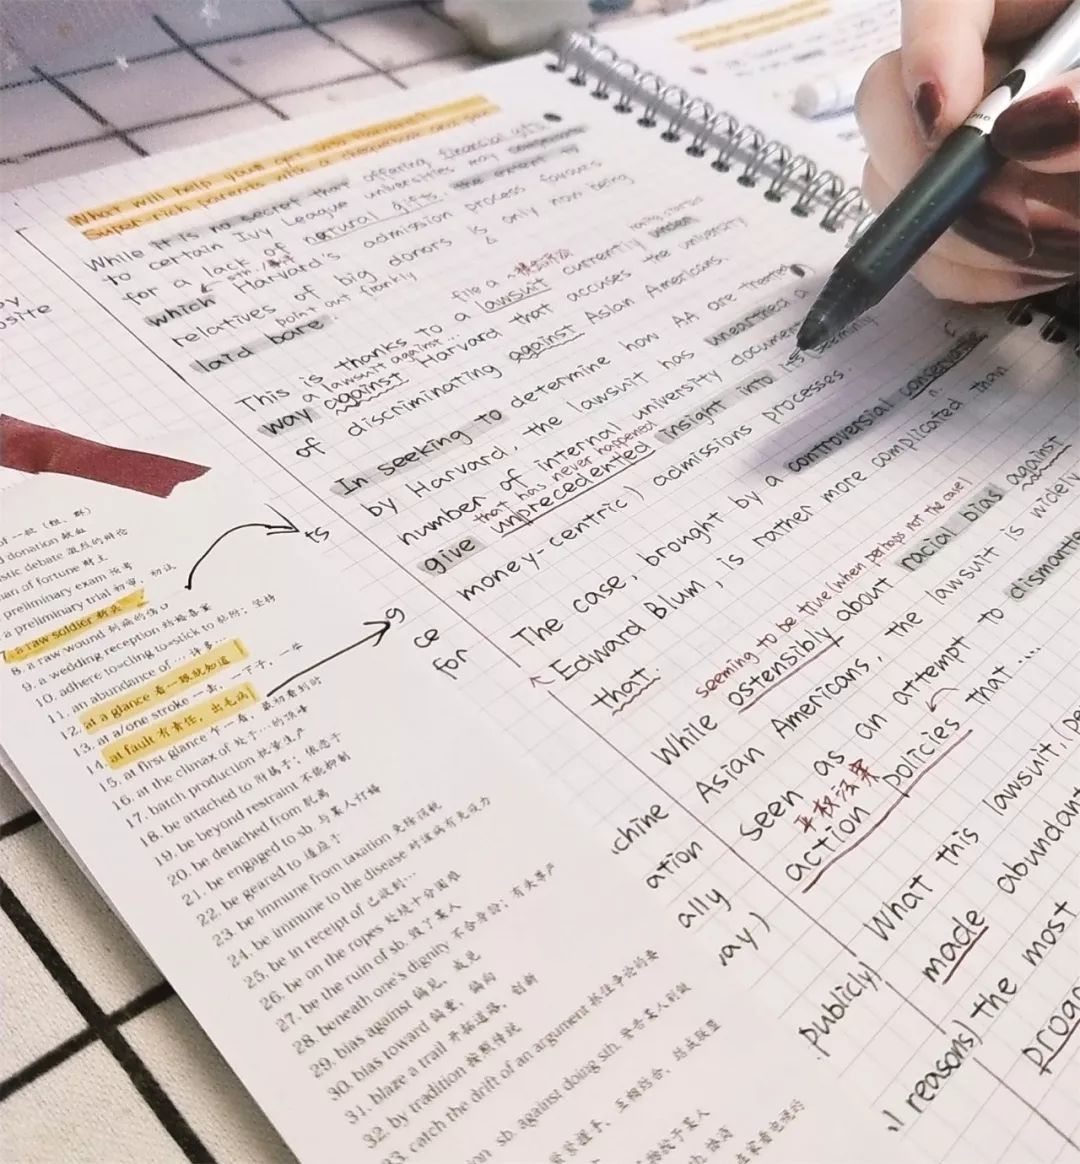 What will help you get into Harvard?
Super-rich parents
While it is no secret that offering financial gifts
to certain Ivy League universities may
for a lack of natural gifts, the extent to
which Harvard's admission process favours
relatives of big donors is only now being
point out frankly
laid bare
file a
This is thanks to a lawsuit currently under
lawsuit against...
way against Harvard that accuses the university
of discriminating against Asian Americans.
In seeking to determine how AA are treated
by Harvard, the lawsuit has unearthed a
number of internal university documents
that has never happened
give unprecedented insight into its (seemingly
money-centric) admissions processes.
The case, brought by a controversial conservative
n.
Edward Blum, is rather more complicated than
that:
seeming to be true (when perhaps not the case)
While ostensibly about racial bias against
Asian Americans, the lawsuit is widely
seen as an attempt to dismantle
平权法案
action policies that ....
What this lawsuit, (
made abundant
publicly
reasons) the most
ts
g
ce
for
chine
ation
ally
ay)
donation 献血
debate 激烈的辩论
man of fortune 财主
preliminary exam 预考
a preliminary trial 初审,初试
7. a raw soldier 新兵
8. a raw wound 刺痛的伤口
9. a wedding reception 结婚喜宴
10. adhere to=cling to=stick to 粘附;坚持
11. an abundance of … 许多…
12. at a glance 看一眼就知道
13. at a/one stroke 一击,一下子,一举
14. at fault 有责任,出毛病
15. at first glance 乍一看,最初看到时
16. at the climax of 处于…的顶峰
17. batch production 批量生产
18. be attached to 附属于;依恋于
19. be beyond restraint 不能抑制
20. be detached from 脱离
21. be engaged to sb. 与某人订婚
22. be geared to 适应于
23. be immune from taxation 免除课税
24. be immune to the disease 对该病有免疫力
25. be in receipt of 已收到…
26. be on the ropes 处境十分困难
27. be the ruin of sb. 毁了某人
28. beneath one's dignity 不合身份;有失尊严
29. bias against 偏见,成见
30. bias toward 偏重,偏向
31. blaze a trail 开拓道路,创新
32. by tradition 按照传统
33. catch the drift of an argument 抓住争论的要
sb. against doing sth. 警告某人别做